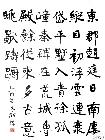 東郡趨庭日南
樓縱目初浮雲
連海岱平野入
青徐孤嶂秦碑
在荒城魯殿餘
從來多古意臨
眺獨躊躇